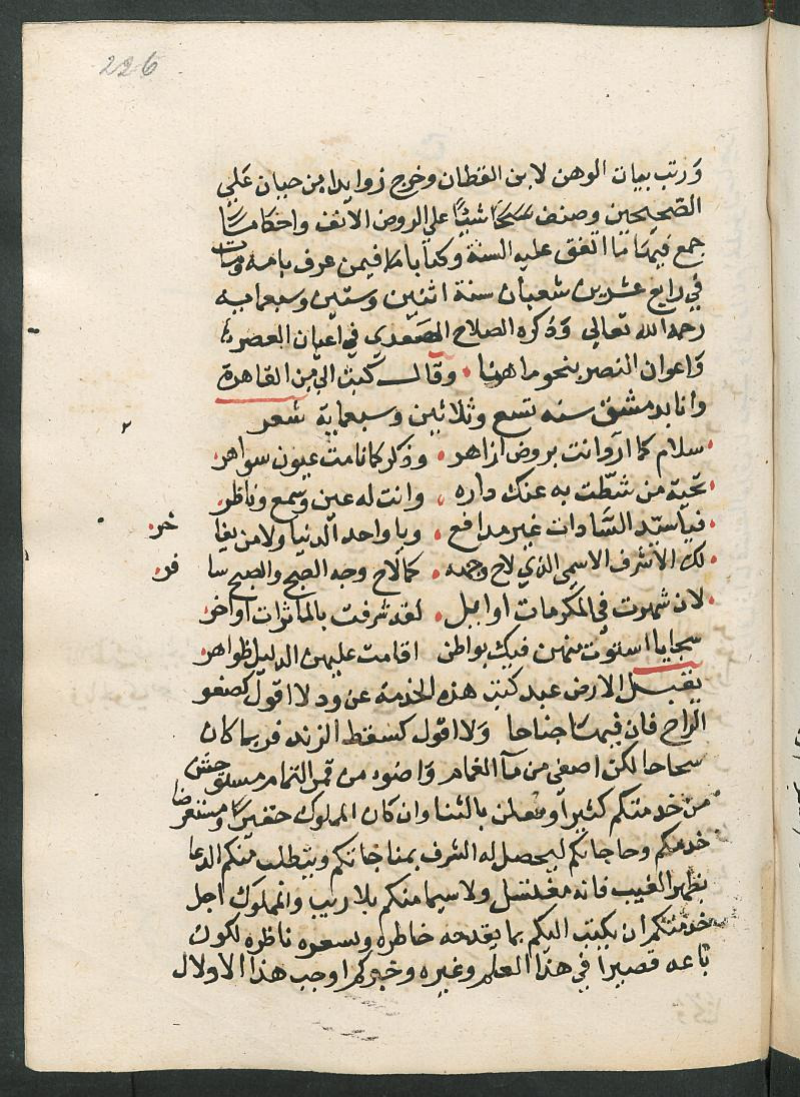 226
ورتب بيان الوهن لابن القطان وخرج زوايد ابن حبان علي
الصحيحين وصنف شيئا علي الروض الانف واحكاما
جمع فيها ما اتفق عليه السنة وكتابا فيمن عرف بامه ومات
في رابع عشرين شعبان سنة اثنين وستين وسبعمايه
رحمه الله تعالي وذكره الصلاح الصفدي في اعيان العصر
واعوان النصر بنحو ما هنا • وقال كتبت الي من القاهرة
وانا بدمشق سنه تسع وثلاثين وسبعماية شعر
• سلام كما ازوانت بروض ازاهر • وذكر كما نامت عيون سواهر
• تحية من شطت به عنك داره • وانت له عين وسمع وناظر
• فيا سيد السادات غير مدافع • ويا واحد الدنيا ولا من يفا خر
• لك الاشرف الاسمي الذي لاح وجهه • كما لاح وجه الصبح والصبح سا فر
• لان شهرت في المكرمات اوايل • لقد شرفت بالماثرات اواخر
سجايا استوت منهن فيك بواطن اقامت عليهن الدليل ظواهر
يقبل الارض عبد كتب هذه الخدمة عن ود لا اقول كصفو
الراح فان فيها جناحا ولا اقول كسقط الزند فربما كان
سحاحا لكن اصفي من ماء الغمام واضوء من قمر التمام مستوحش
من خدمتكم كثيرا ومعلن بالثنا وان كان المملوك حقيرا ومستعرضا
خدمكم وحاجاتكم ليحصل له الشرف بمناجاتكم ويتطلب منكم الدعا
بظهر الغيب فانه مغتسل ولا سيما منكم بلا ريب والمملوك اجل
خدمتكم ان يكتب اليكم بما يقدحه خاطره ويسعره ناظره لكون
باعه قصيرا في هذا العلم وغيره وخبركم اوجب هذا الاولال